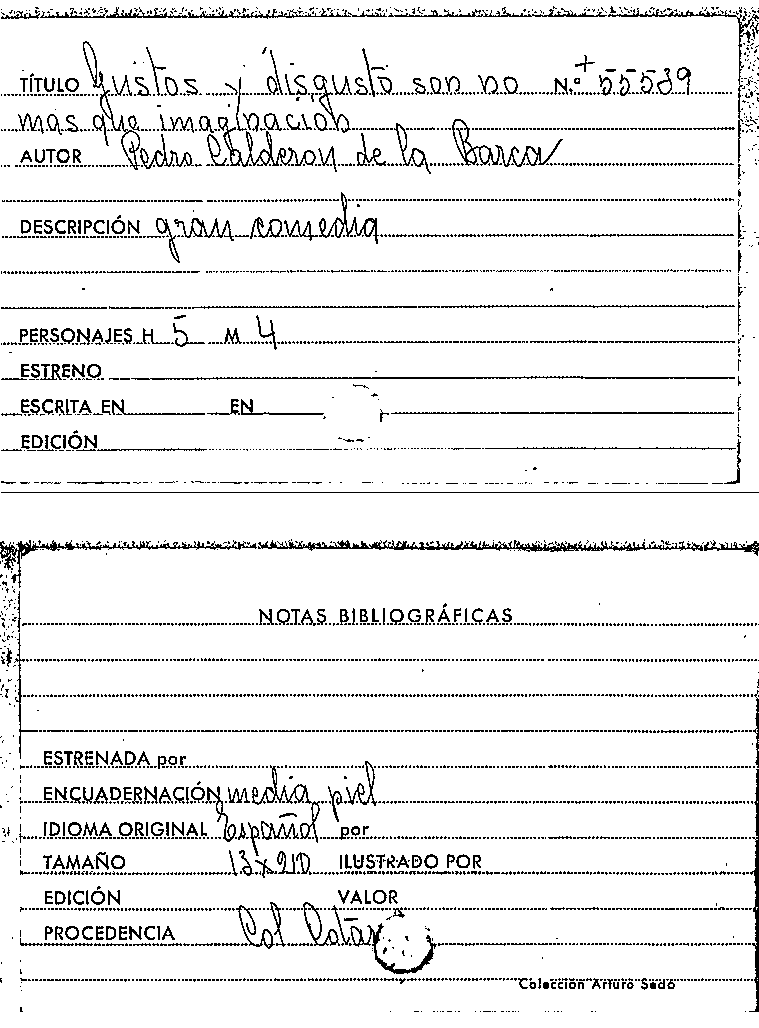 TÍTULO Gustos y disgusto son no N.º + 55539
mas que imaginación
AUTOR Pedro Calderon de la Barca
DESCRIPCIÓN gran comedia
PERSONAJES H 5 M 4
ESTRENO
ESCRITA EN EN
EDICIÓN
NOTAS BIBLIOGRÁFICAS
ESTRENADA por
ENCUADERNACIÓN media piel
IDIOMA ORIGINAL Español por
TAMAÑO ILUSTRADO POR
EDICIÓN VALOR
PROCEDENCIA Col
Colección Arturo Sedó